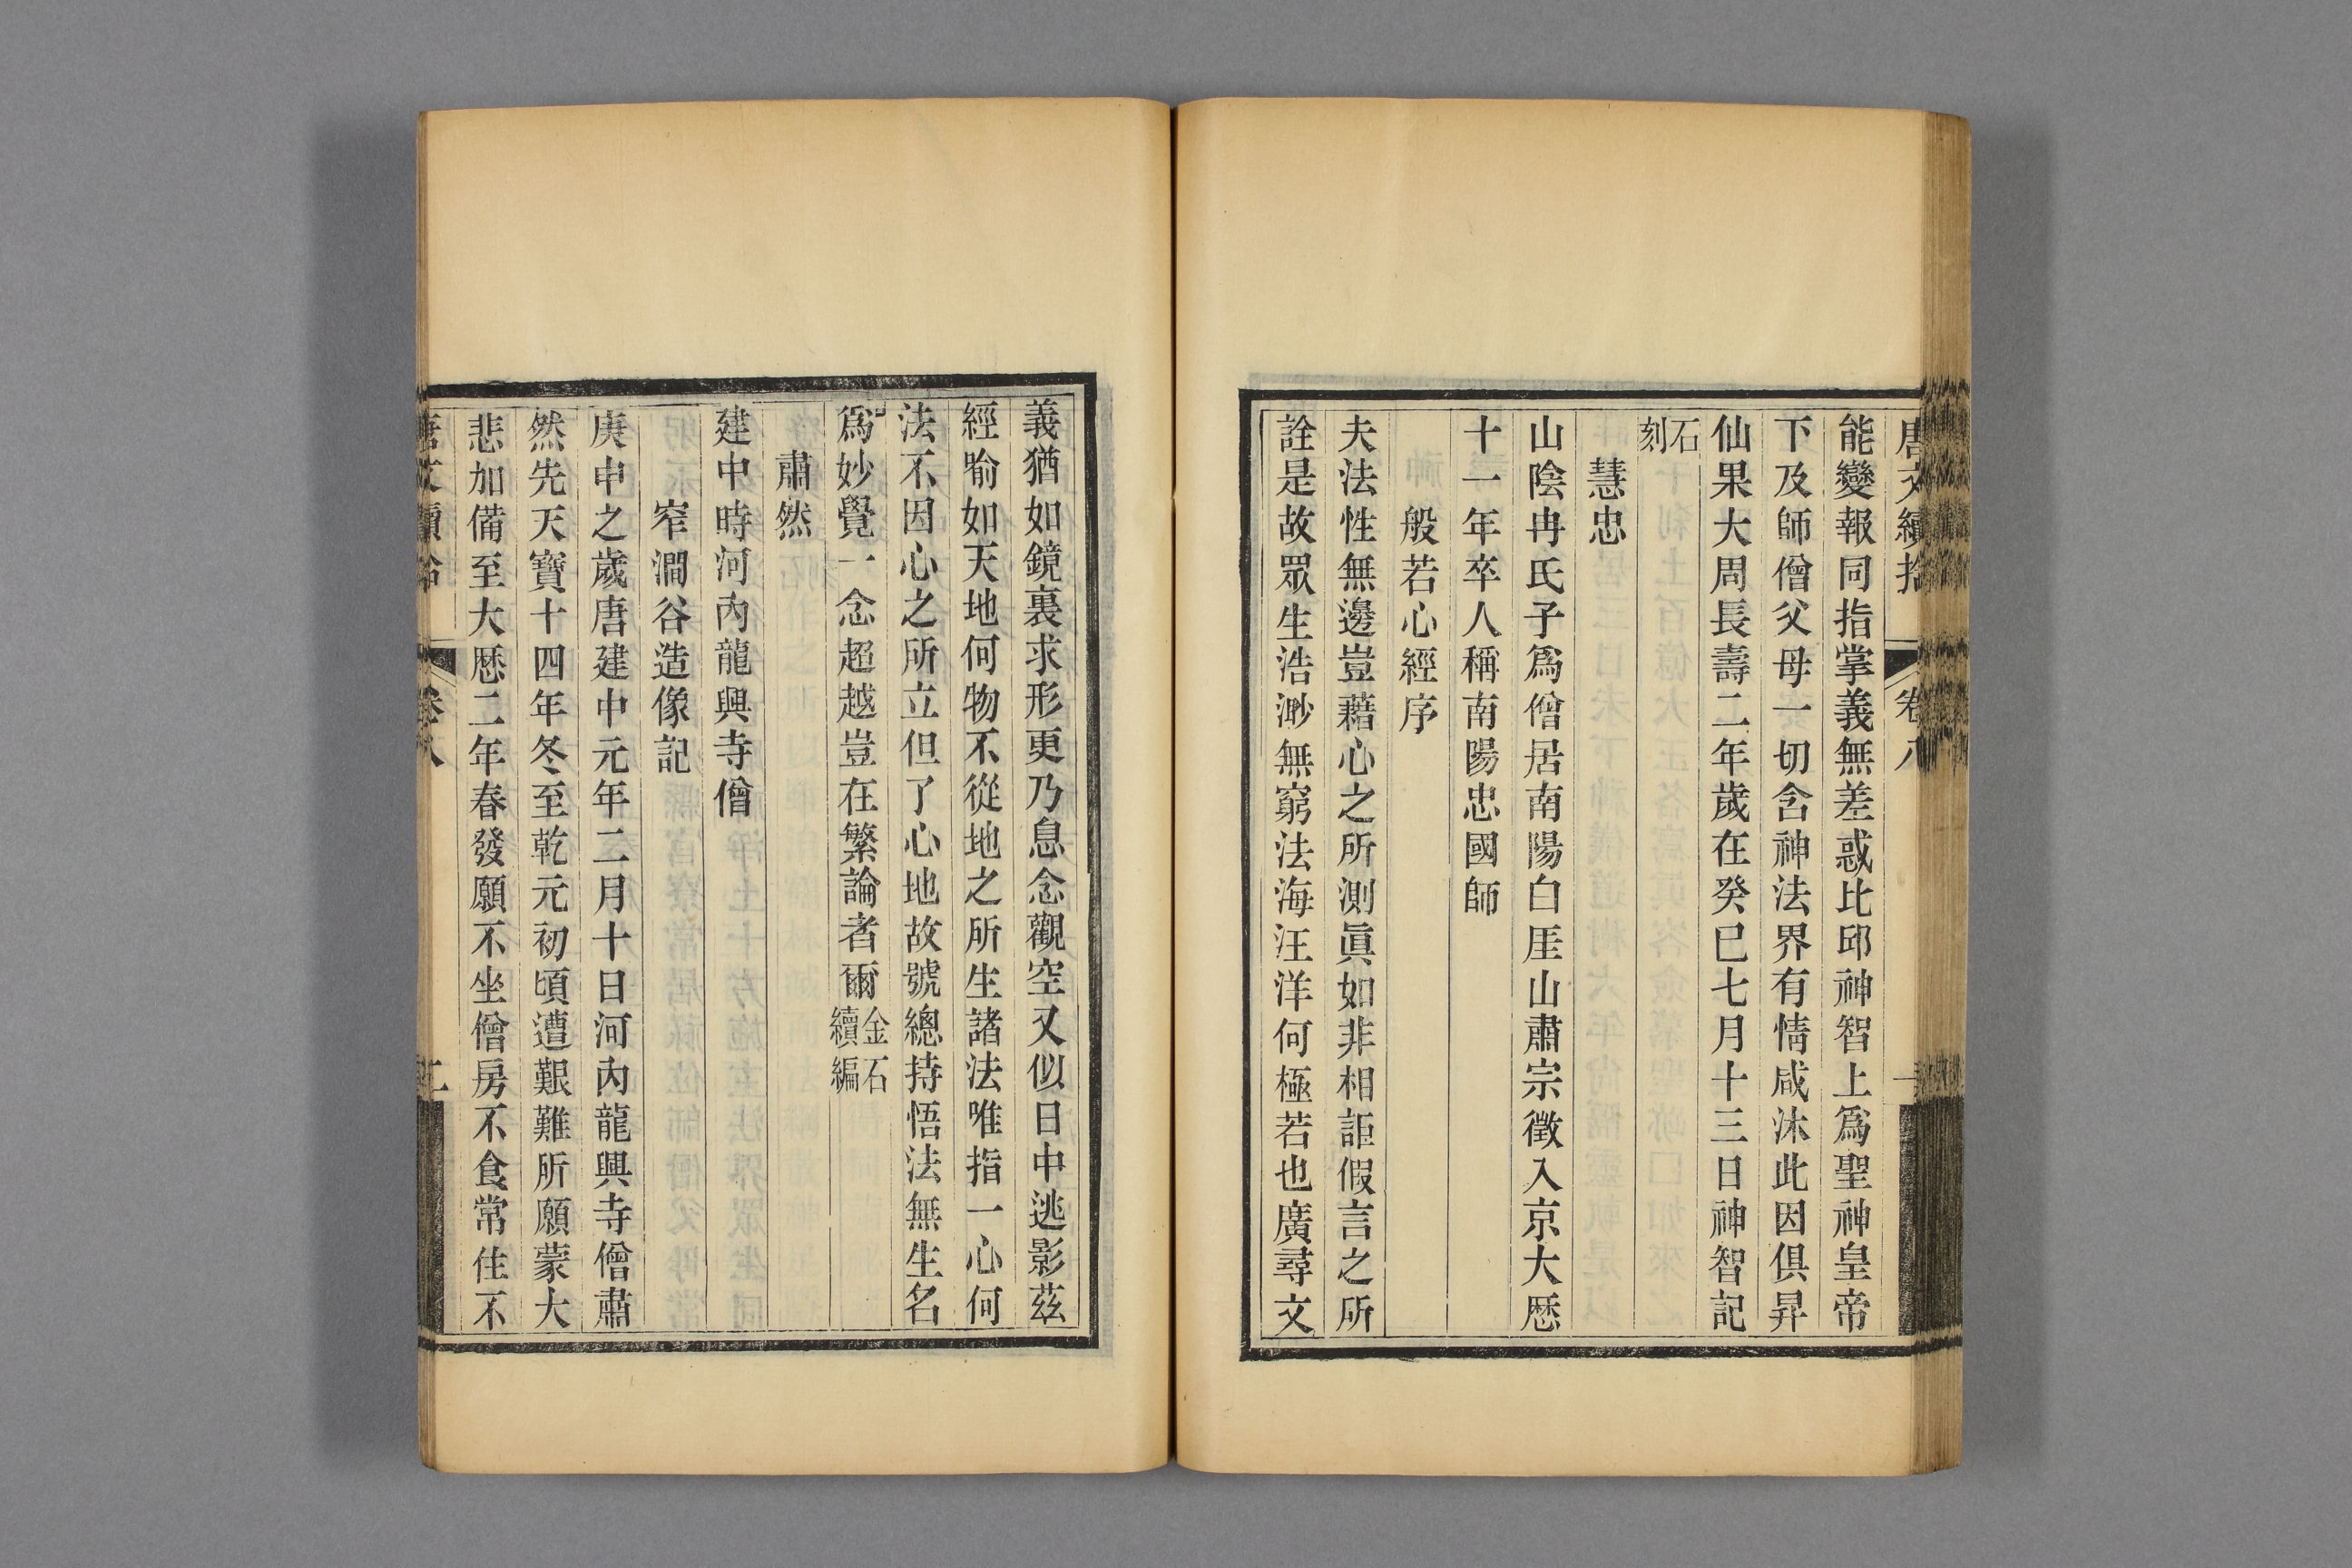 唐文續拾 卷八 一
能變報同指掌義無差惑比邱神智上爲聖神皇帝
下及師僧父母一切含神法界有情咸沐此因俱昇
仙果大周長壽二年歲在癸巳七月十三日神智記
石刻
慧忠
山陰冉氏子爲僧居南陽白厓山肅宗徵入京大厯
十一年卒人稱南陽忠國師
般若心經序
夫法性無邊豈藉心之所測眞如非相詎假言之所
詮是故眾生浩渺無窮法海汪洋何極若也廣尋文
義猶如鏡裏求形更乃息念觀空又似日中逃影茲
經喻如天地何物不從地之所生諸法唯指一心何
法不因心之所立但了心地故號總持悟法無生名
爲妙覺一念超越豈在繁論者爾金石續編
肅然
建中時河內龍興寺僧
窄澗谷造像記
庚申之歲唐建中元年二月十日河內龍興寺僧肅
然先天寶十四年冬至乾元初頃遭艱難所願蒙大
悲加備至大厯二年春發願不坐僧房不食常住不
唐文續拾 卷八 二